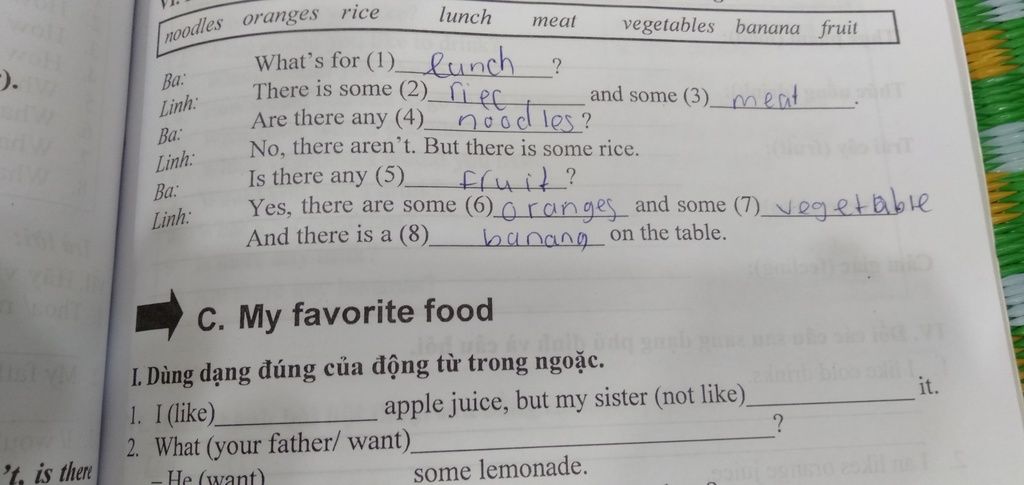 noodles oranges rice lunch meat vegetables banana fruit
Ba: What's for (1) lunch ?
Linh: There is some (2) riec and some (3) meat .
Ba: Are there any (4) noodles ?
Linh: No, there aren't. But there is some rice.
Ba: Is there any (5) fruit ?
Linh: Yes, there are some (6) oranges and some (7) vegetable
And there is a (8) banana on the table.
C. My favorite food
I. Dùng dạng đúng của động từ trong ngoặc.
1. I (like)____________ apple juice, but my sister (not like)____________ it.
2. What (your father/ want)____________?
– He (want) some lemonade.
't, is there